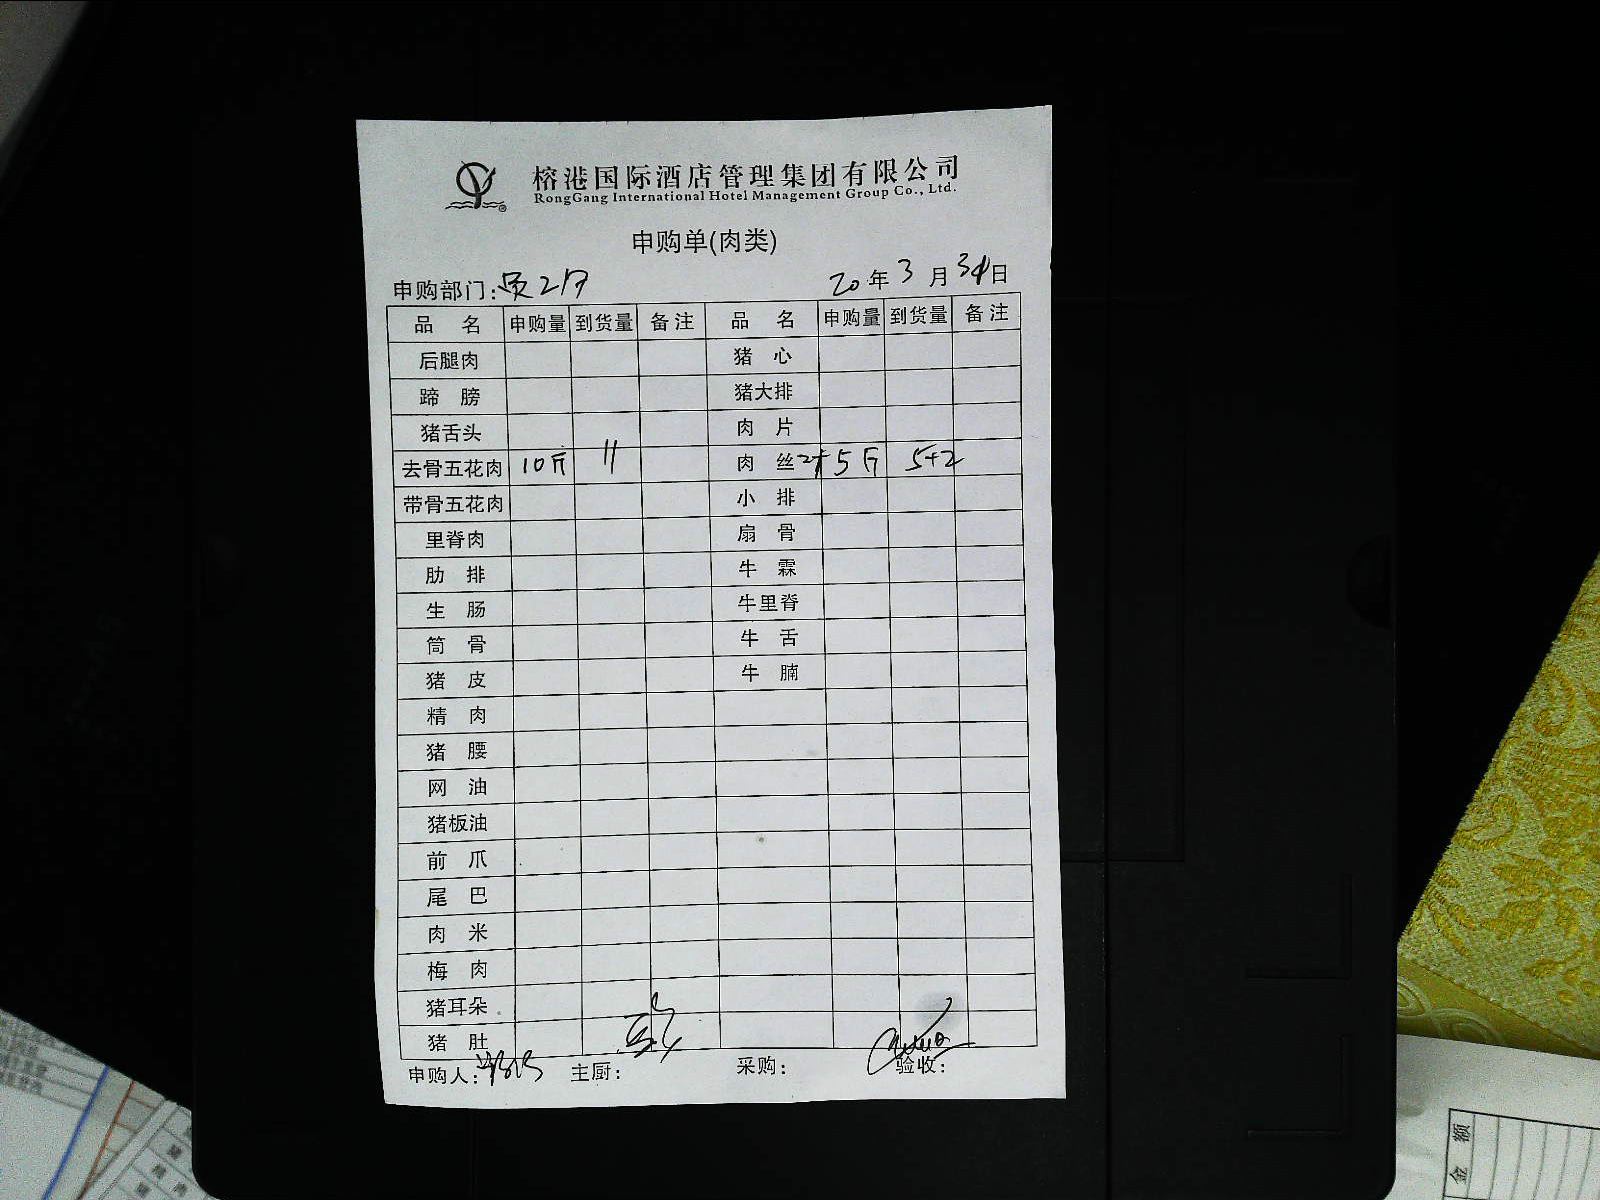 榕港国际酒店管理集团有限公司
RongGang International Hotel Management Group Co., Ltd.
申购单(肉类)
申购部门: 20年3月31日
品 名 申购量 到货量 备注 品 名 申购量 到货量 备注
后腿肉 猪 心
蹄 膀 猪大排
猪舌头 肉 片
去骨五花肉 10斤 11 肉 丝 5斤 5+2
带骨五花肉 小 排
里脊肉 扇 骨
肋 排 牛 霖
生 肠 牛里脊
筒 骨 牛 舌
猪 皮 牛 腩
精 肉
猪 腰
网 油
猪板油
前 爪
尾 巴
肉 米
梅 肉
猪耳朵
猪 肚
申购人: 主厨: 采购: 验收:
金 额